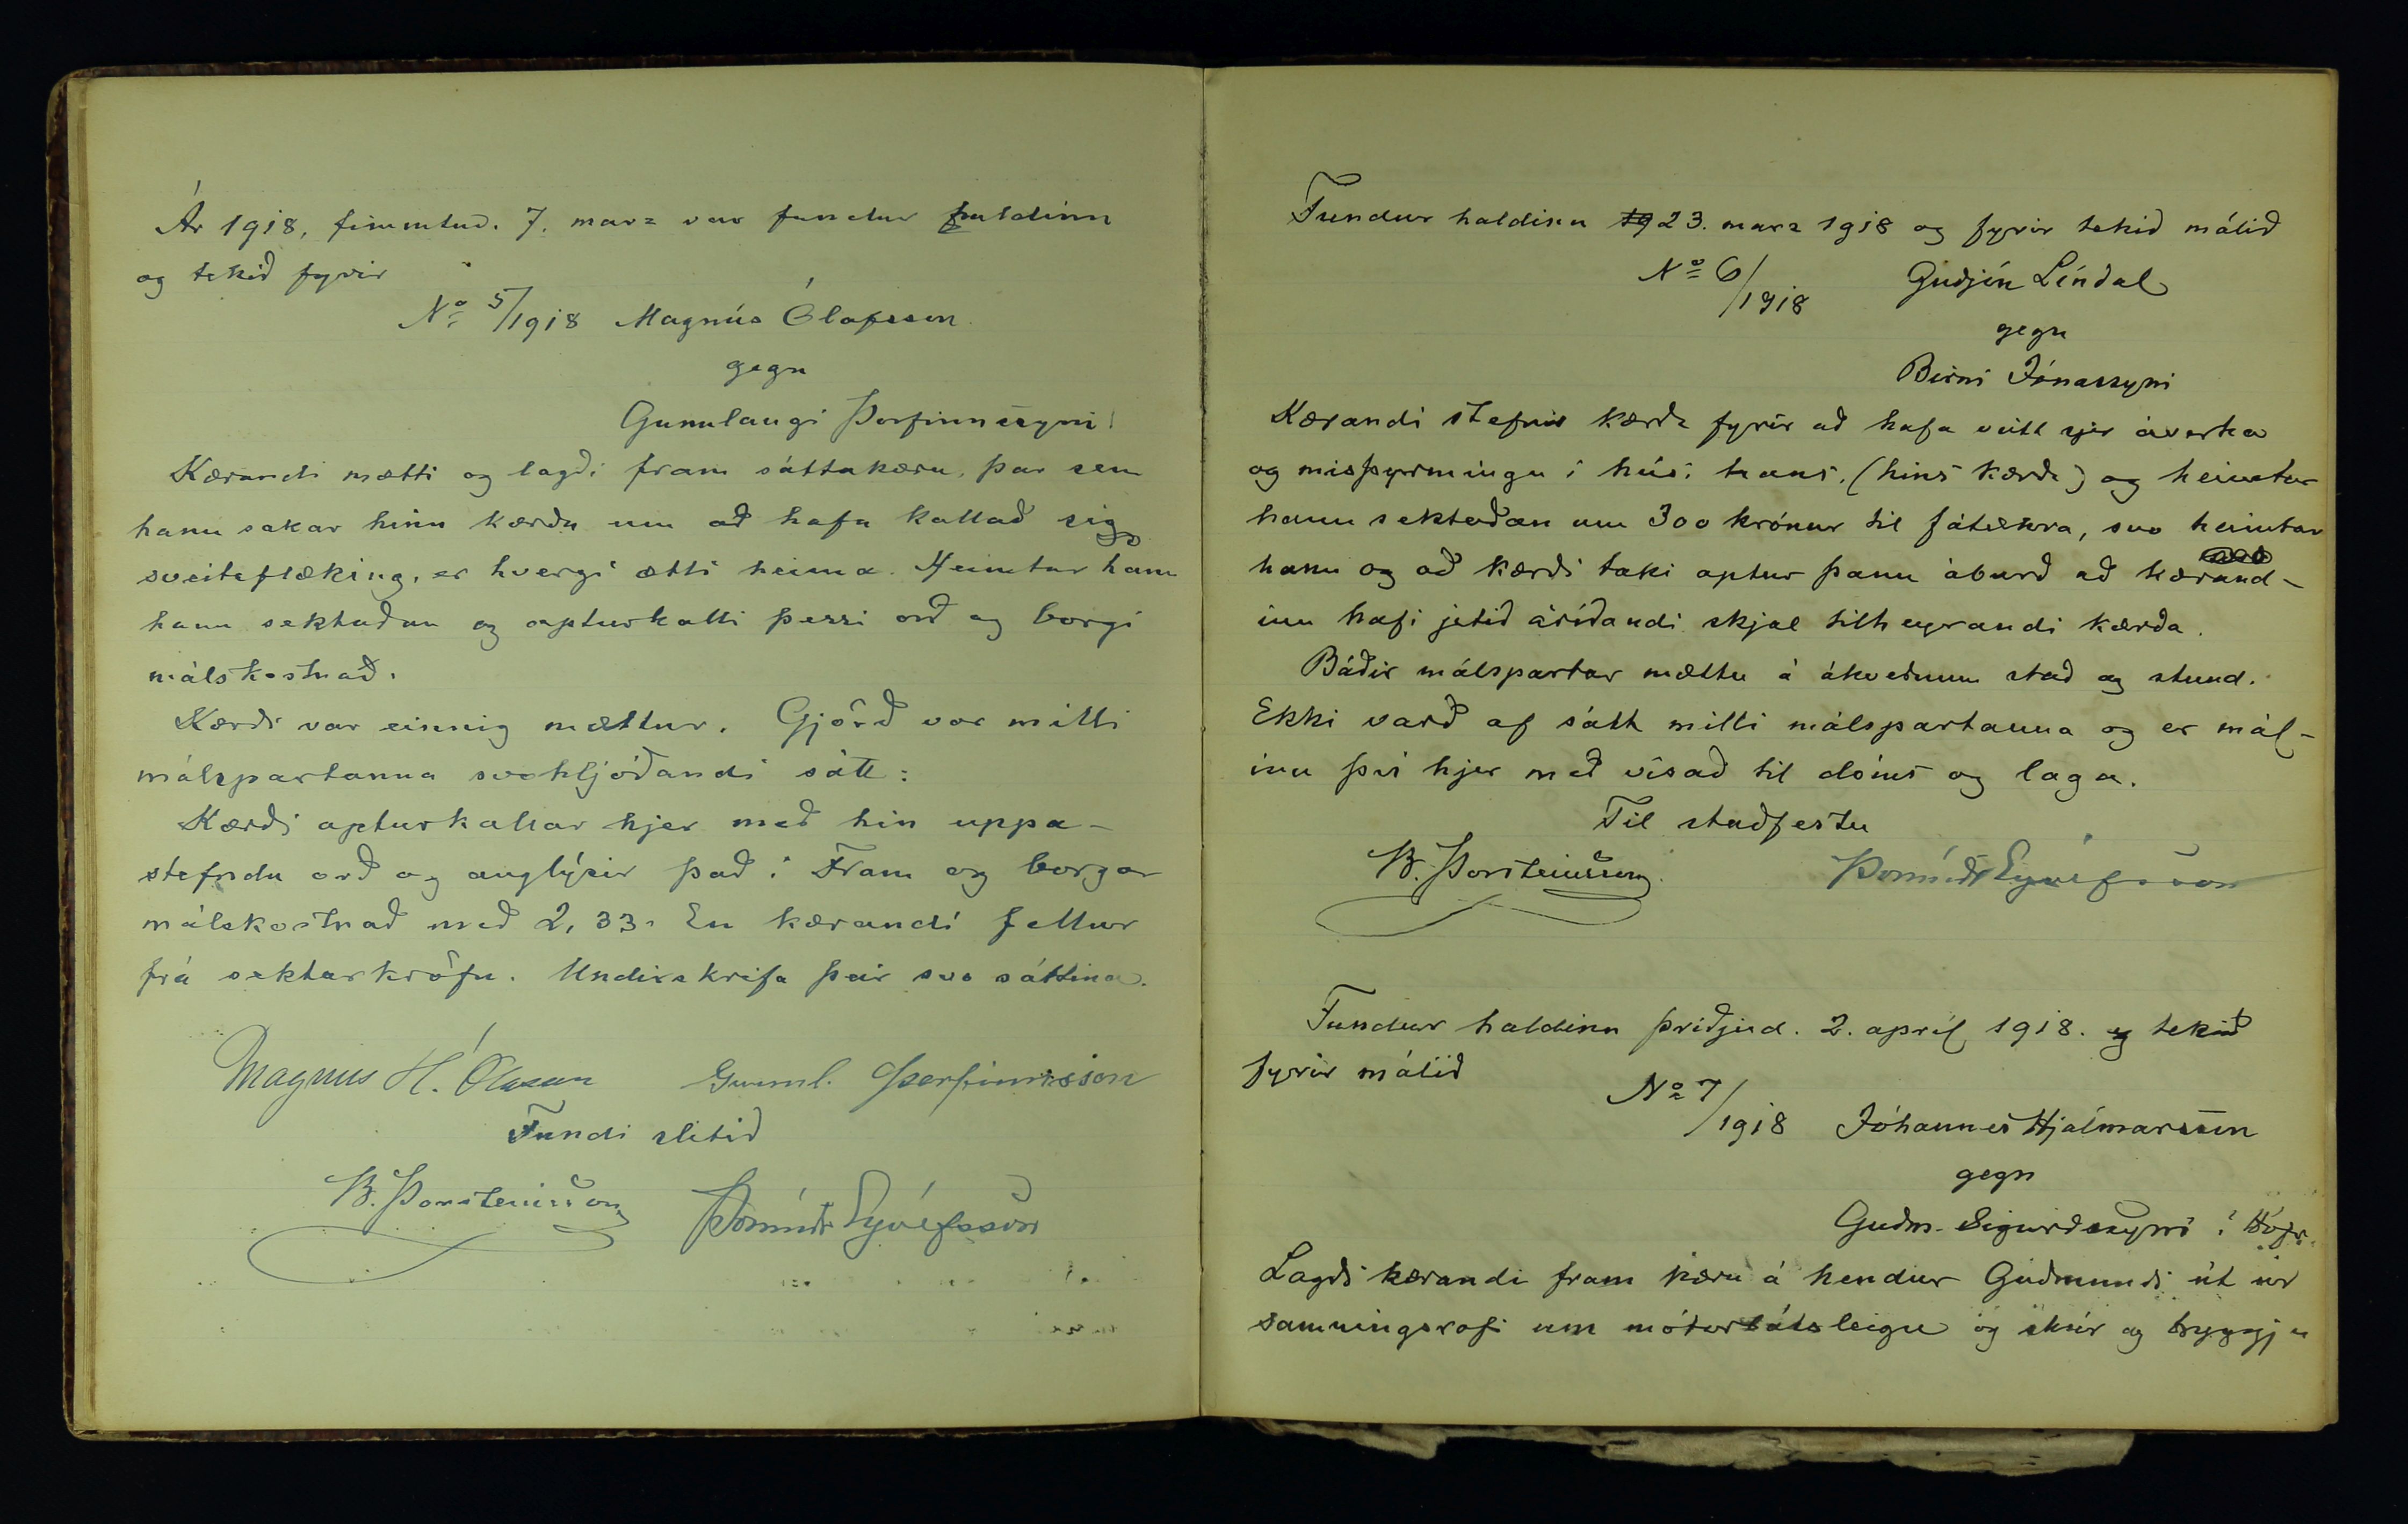 Ár 1918, fimmtud. 7. marz var fundur haldinn
og tekið fyrir
No 5/1918 Magnús Ólafsson
gegn
Gunnlaugi Þorfinnssyni
Kærandi mætti og lagði fram sáttakæru, þar sem
hann sakar hinn kærða um að hafa kallað sig
sveitaflæking, er hvergi ætti heima. Heimtar hann
hann sektaðan og apturkalli þessi orð og borgi
málskostnað.
Kærði var einnig mættur. Gjörð var milli
málspartanna svohljóðandi sátt:
Kærði apturkallar hjer með hin uppá-
stefndu orð og auglýsir það í Fram og borgar
málskostnað með 2,33. En kærandi fellur
frá sektarkröfu. Undirskrifa þeir svo sáttina.
Magnus H. Ólason Gunnl. Þorfinnsson
Fundi slitið
B. Þorsteinsson Þormóðr Eyólfsson
Fundur haldinn 19 23. marz 1918 og fyrir tekið málið
No 6/1918 Guðjón Líndal
gegn
Birni Jónassyni
Kærandi stefnir kærða fyrir að hafa veitt sjer áverka
og misþyrmingu í húsi hans, (hins kærða) og heimtar
hann sektaðan um 300 krónur til fátækra, svo heimtar
hann og að kærði taki aptur þann áburð að kærand-
inn hafi jetið áríðandi skjal tilheyrandi kærða.
Báðir málspartar mættu á ákveðnum stað og stund.
Ekki varð af sátt milli málspartanna og er mál-
inu því hjer með vísað til dóms og laga.
Til staðfestu
B. Þorsteinsson Þormóðr Eyólfsson
Fundur haldinn þriðjud. 2. apríl 1918. og tekið
fyrir málið
No 7/1918 Jóhannes Hjálmarsson
gegn
Guðm. Sigurðssyni í
Lagði kærandi fram kæru á hendur Guðmundi út úr
samningsrofi um mótorbátsleigu og skúr og bryggju